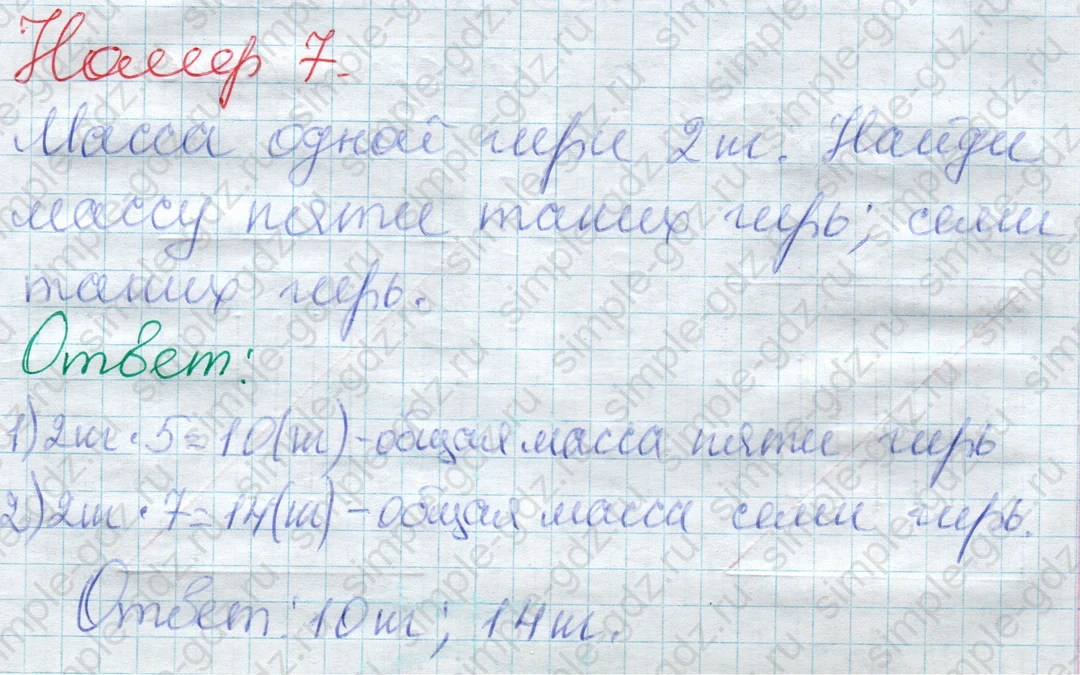 Номер 7.
Масса одной гири 2т. Найди
массу пяти таких гирь; семи
таких гирь.
Ответ:
1) 2т · 5 = 10(т) - общая масса пяти гирь
2) 2т · 7 = 14(т) - общая масса семи гирь.
Ответ: 10т; 14т.
simple-gdz.ru